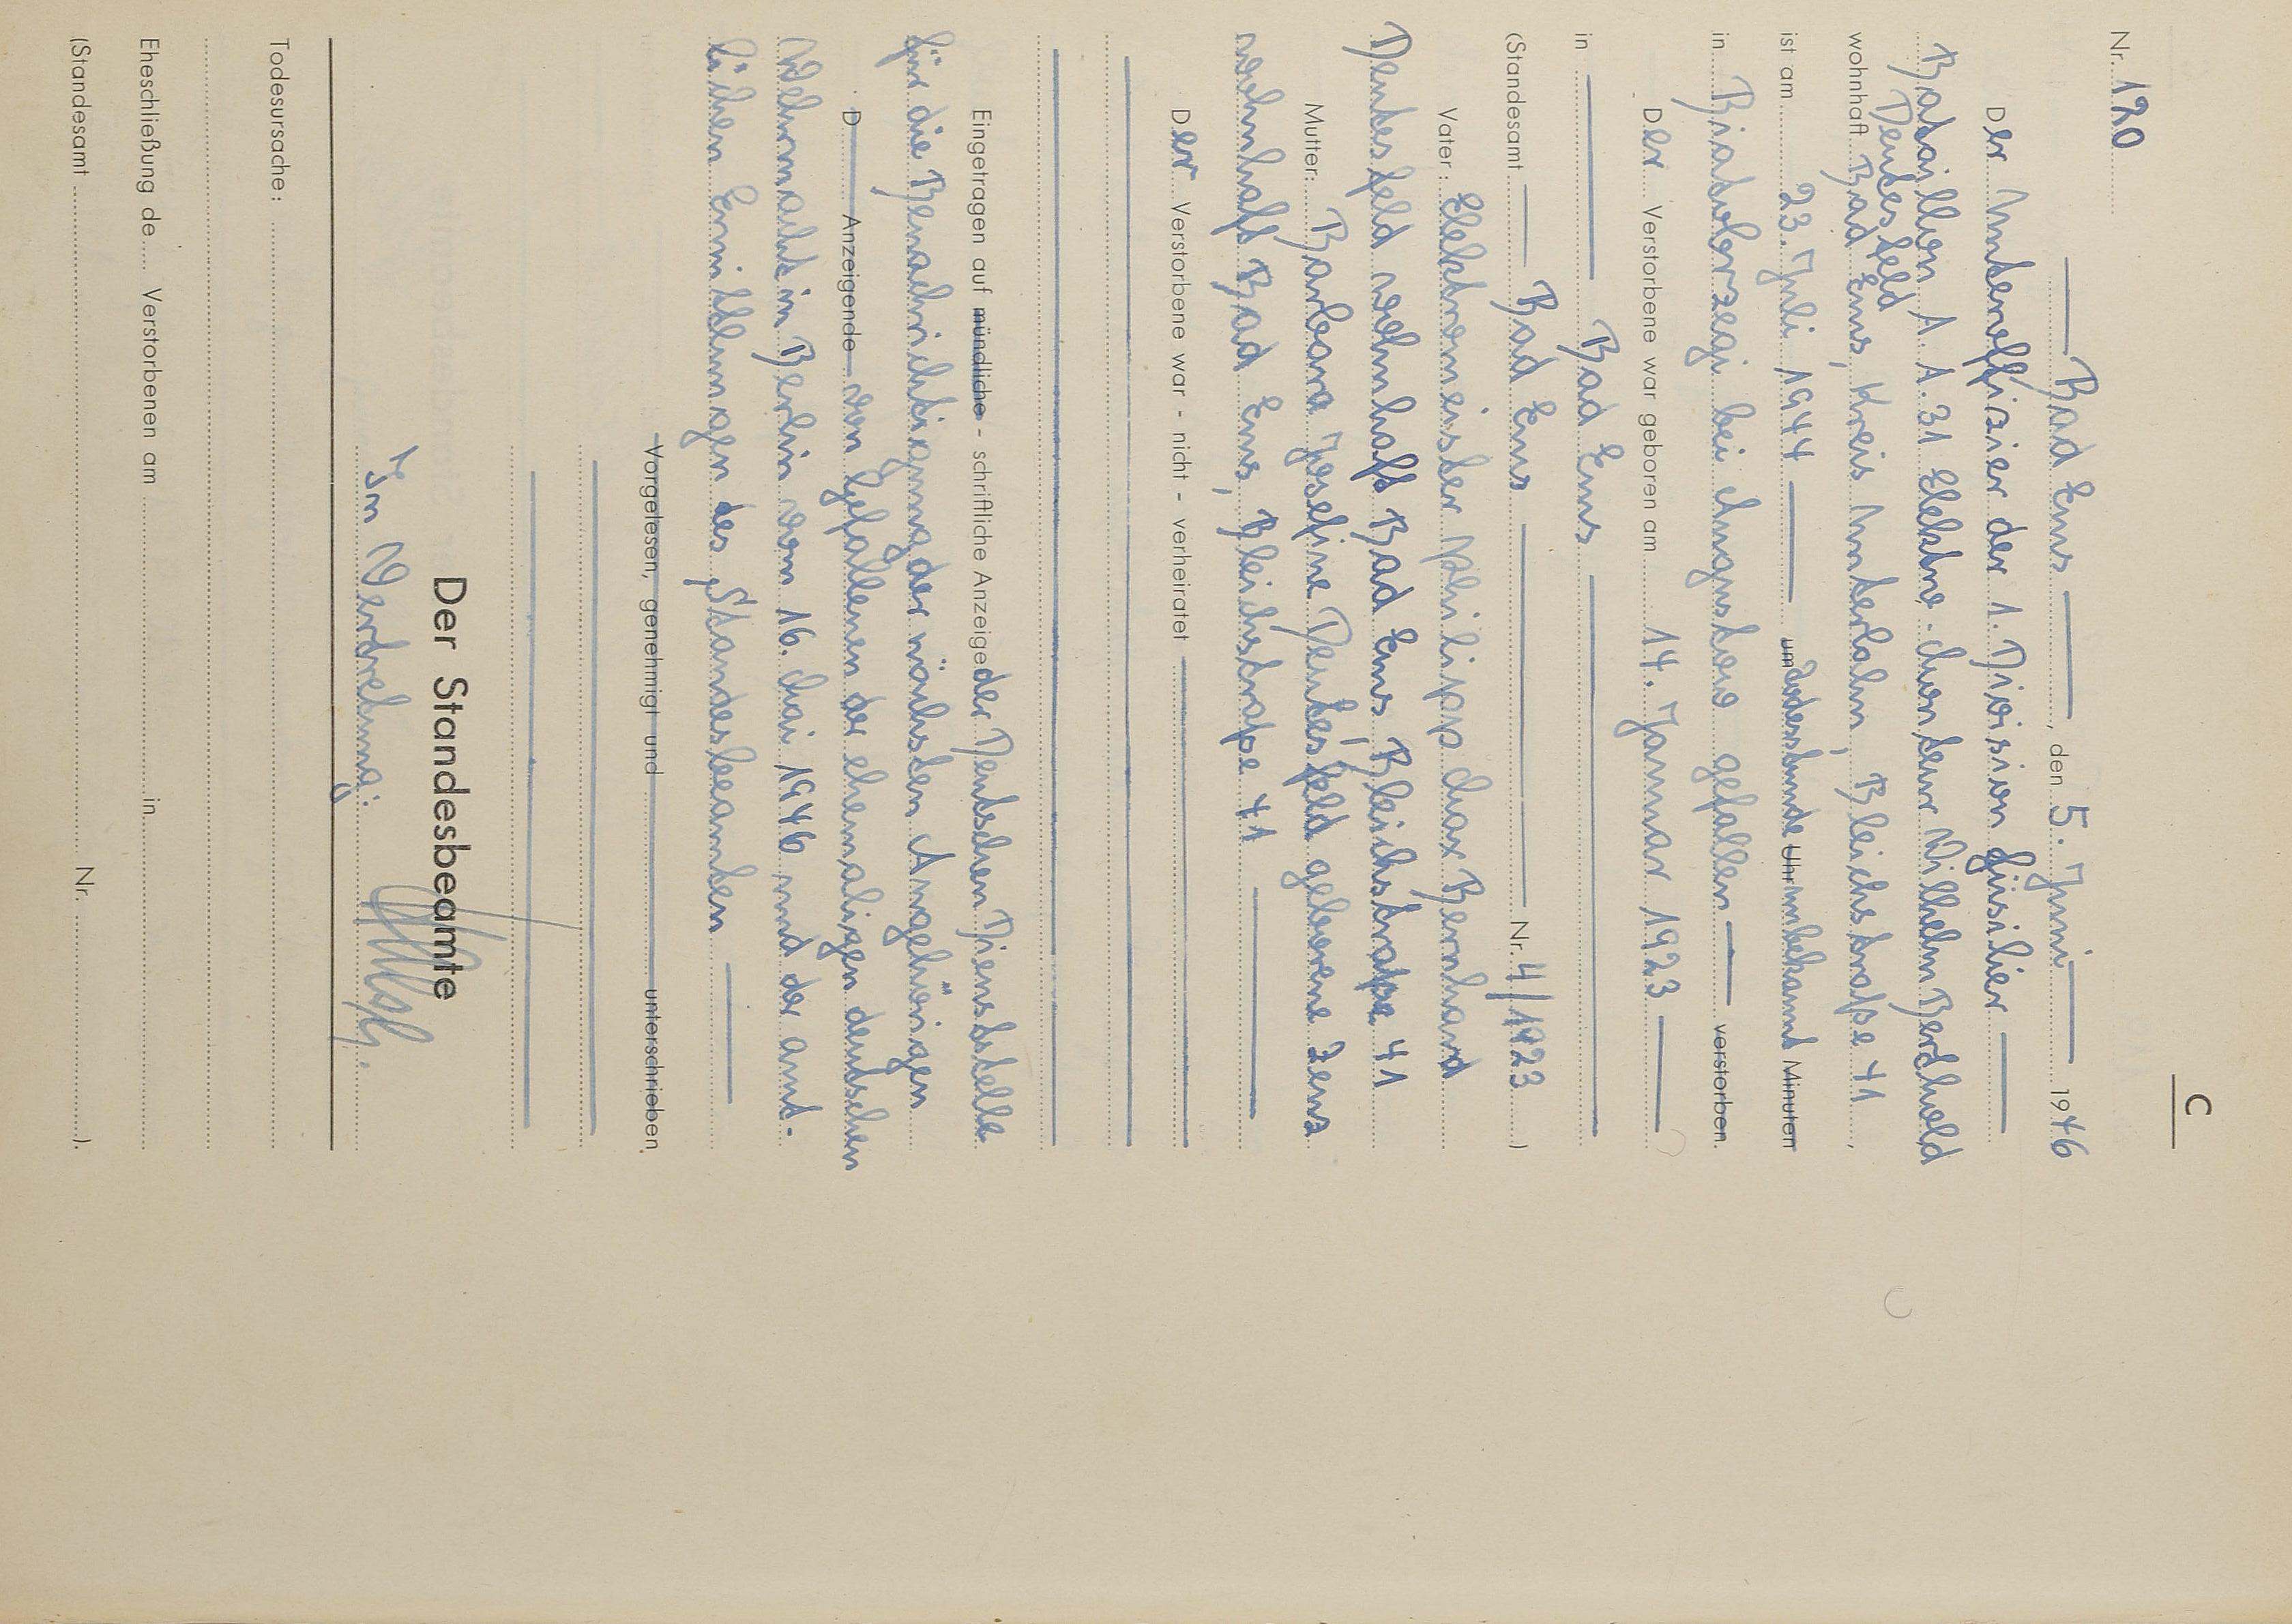 C
Nr. 120
Bad Ems, den 5. Juni 1946
Der Unteroffizier der 1. Division Füsilier
Bataillon A. A. 1. 31 Elektro-Monteur Wilhelm Berthold
Deutesfeld
wohnhaft Bad Ems, Kreis Unterlahn, Bleichstraße 41,
ist am 23. Juli 1944 um Todesstunde Uhr unbekannt Minuten
in Biatobrzegi bei Augustow gefallen verstorben.
Der Verstorbene war geboren am 14. Januar 1923
in Bad Ems
(Standesamt Bad Ems Nr. 4/1923)
Vater: Elektromeister Philipp Max Bernhard
Deutesfeld wohnhaft Bad Ems, Bleichstraße 41
Mutter: Barbara Josefine Deutesfeld geborene Zenz
wohnhaft Bad Ems, Bleichstraße 41
Der Verstorbene war - nicht - verheiratet
Eingetragen auf mündliche - schriftliche Anzeige der Deutschen Dienststelle
für die Benachrichtigung der nächsten Angehörigen
D Anzeigende von Gefallenen der ehemaligen deutschen
Wehrmacht in Berlin vom 16. Mai 1946 und der amt-
lichen Ermittlungen des Standesbeamten
Vorgelesen, genehmigt und unterschrieben
Der Standesbeamte
In Vertretung:
Todesursache:
Eheschließung de Verstorbenen am in
(Standesamt Nr. ).